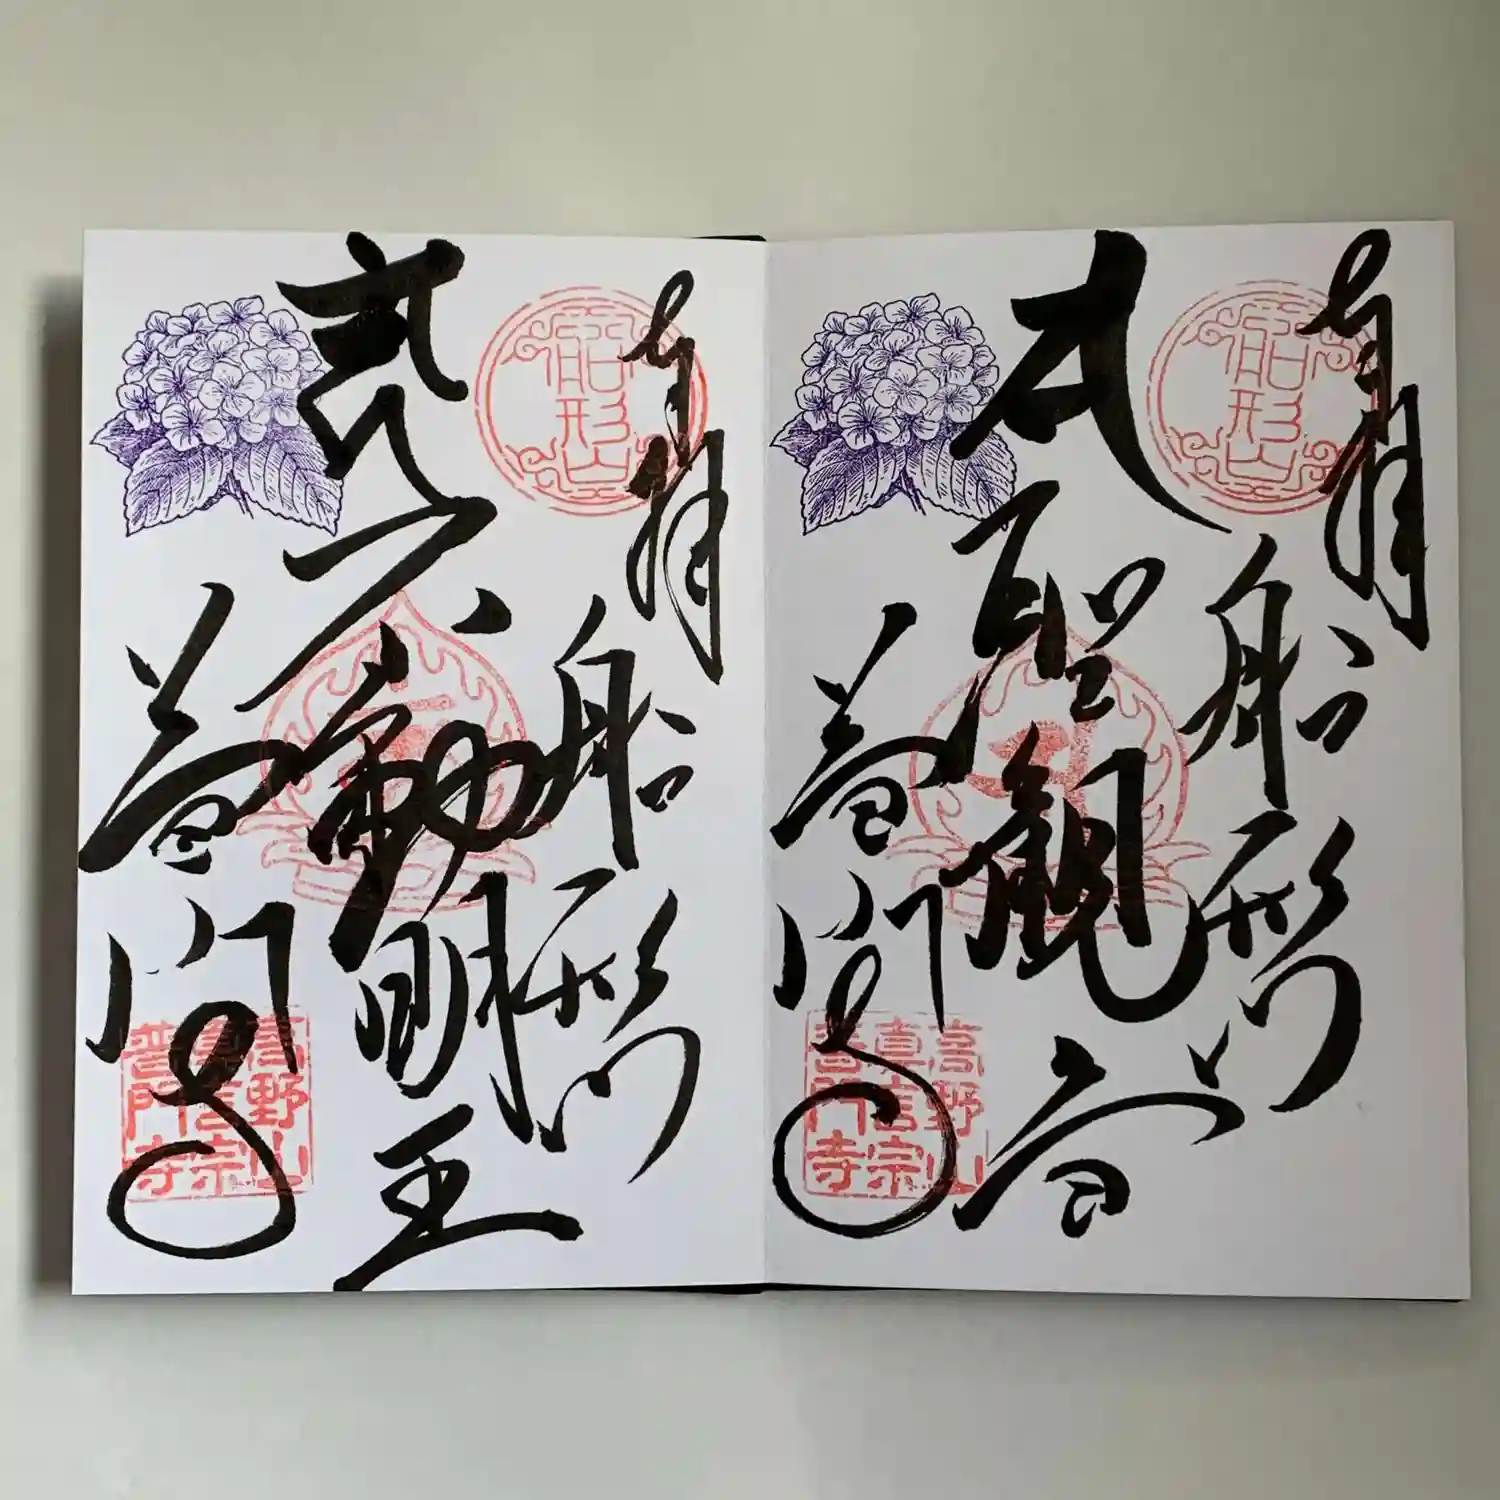 奉拝
船形山
船形山
𑖭 聖観音
普門寺
高野山
真言宗
普門寺
奉拝
船形山
船形山
不動明王
普門寺
高野山
真言宗
普門寺